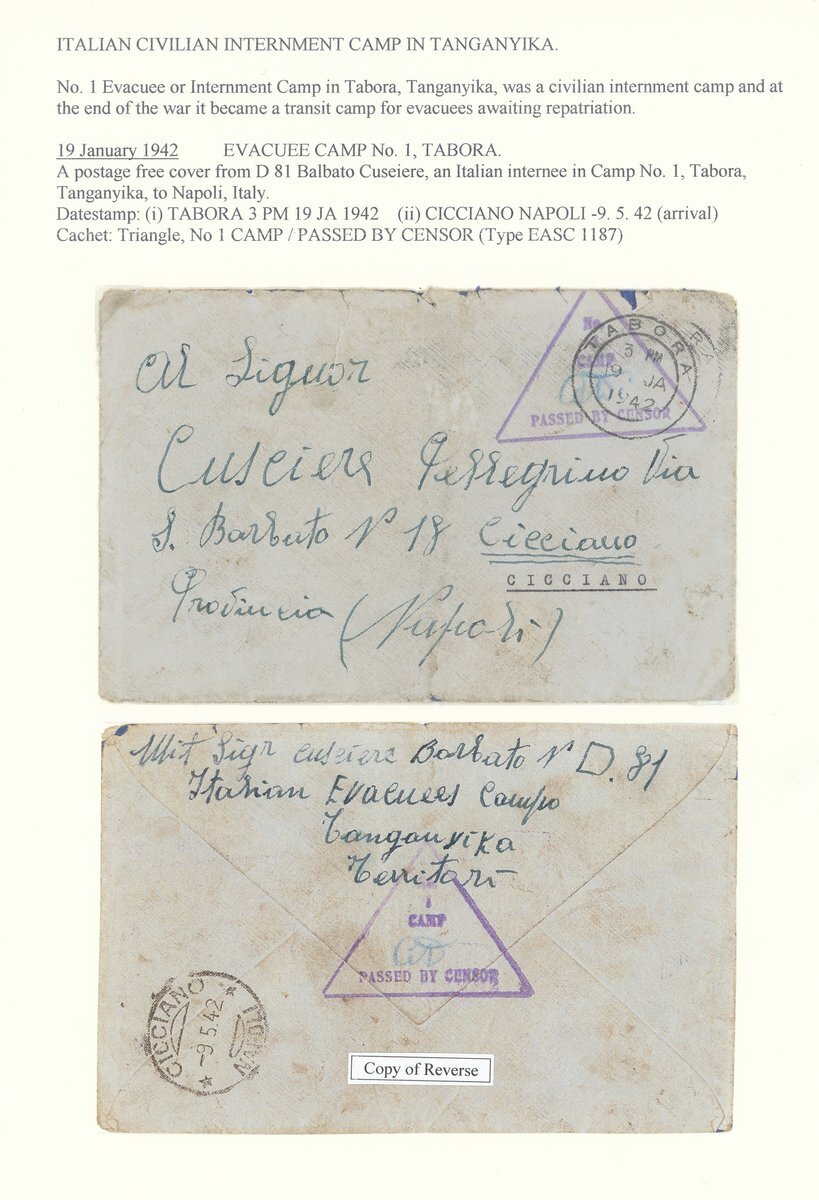 ITALIAN CIVILIAN INTERNMENT CAMP IN TANGANYIKA.
No. 1 Evacuee or Internment Camp in Tabora, Tanganyika, was a civilian internment camp and at
the end of the war it became a transit camp for evacuees awaiting repatriation.
19 January 1942 EVACUEE CAMP No. 1, TABORA.
A postage free cover from D 81 Balbato Cuseiere, an Italian internee in Camp No. 1, Tabora,
Tanganyika, to Napoli, Italy.
Datestamp: (i) TABORA 3 PM 19 JA 1942 (ii) CICCIANO NAPOLI -9. 5. 42 (arrival)
Cachet: Triangle, No 1 CAMP / PASSED BY CENSOR (Type EASC 1187)
No
CAMP
PASSED BY CENSOR
TABORA
3 PM
19 JA
1942
Al Signor
Cusciere Pellegrino Via
S. Barbato N 18 Cicciano
CICCIANO
Provincia (Napoli)
Mit Sigr Cusciere Barbato N D. 81
Italian Evacuees Campo
Tanganyika
Territori
1
CAMP
PASSED BY CENSOR
CICCIANO
-9.5.42
NAPOLI
Copy of Reverse